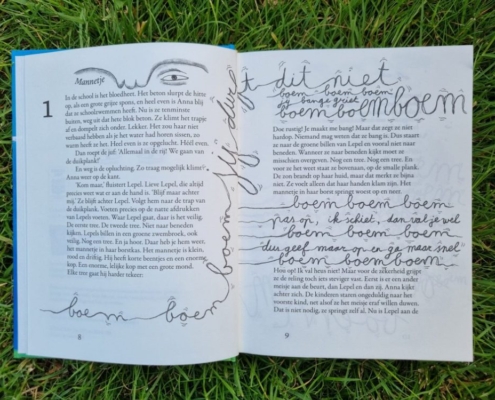 Mannetje
1
In de school is het bloedheet. Het beton slurpt de hitte
op, als een grote grijze spons, en heel even is Anna blij
dat ze schoolzwemmen heeft vandaag. Nu is ze tenminste
buiten, weg uit dat hete blok beton. Ze klimt het trapje
af en dompelt zich onder. Lekker. Het zou haar niet
verbaasd hebben als je het water had horen sissen, zo
warm heeft ze het. Heel even is ze opgelucht. Héél even.
Dan roept de juf: 'Allemaal in de rij! We gaan van
de duikplank!'
En weg is de opluchting. Zo traag mogelijk klimt
Anna weer op de kant.
'Kom maar,' fluistert Lepel. Lieve Lepel, die altijd
precies weet wat er aan de hand is. 'Blijf maar achter
mij.' Ze blijft achter Lepel. Volgt hem naar de trap van
de duikplank. Voeten precies op de natte afdrukken
van Lepels voeten. Waar Lepel gaat, daar is het veilig.
De eerste tree. De tweede tree. Niet naar beneden
kijken. Lepels billen in een groene zwembroek, ook
veilig. Nog een tree. En ja hoor. Daar heb je hem weer,
het mannetje in haar borstkas. Het mannetje is klein,
rond en driftig. Hij heeft korte beentjes en een enorme,
kop. Een enorme, lelijke kop met een grote mond.
Elke tree gaat hij harder tekeer:
boem boem
boem jij durf
8
t dit niet
boem boem boem
jij bange griet
boem boem boem
Doe rustig! Je maakt me bang! Maar dat zegt ze niet
hardop. Niemand mag weten dat ze bang is. Dus staart
ze naar de groene billen van Lepel en vooral niet naar
beneden. Wanneer ze naar beneden kijkt moet ze
misschien overgeven. Nog een tree. Nog een tree. En
voor ze het weet staat ze bovenaan, op de smalle plank.
De zon brandt op haar huid, maar dat merkt ze bijna
niet. Ze voelt alleen dat haar handen klam zijn. Het
mannetje in haar borst springt woest op en neer.
boem boem boem boem
pas op, ik schiet, dan val je wel
boem boem boem boem
dus geef maar op en ga maar snel
boem boem boem boem
Hou op! Ik val heus niet! Maar voor de zekerheid grijpt
ze de reling toch iets steviger vast. Eerst is er een ander
meisje aan de beurt, dan Lepel en dan zij. Anna kijkt
achter zich. De kinderen staan ongeduldig naar het
voorste te kijken, net alsof ze het meisje eraf willen duwen.
Dat is niet nodig, ze springt zelf al. Nu is Lepel aan de
9